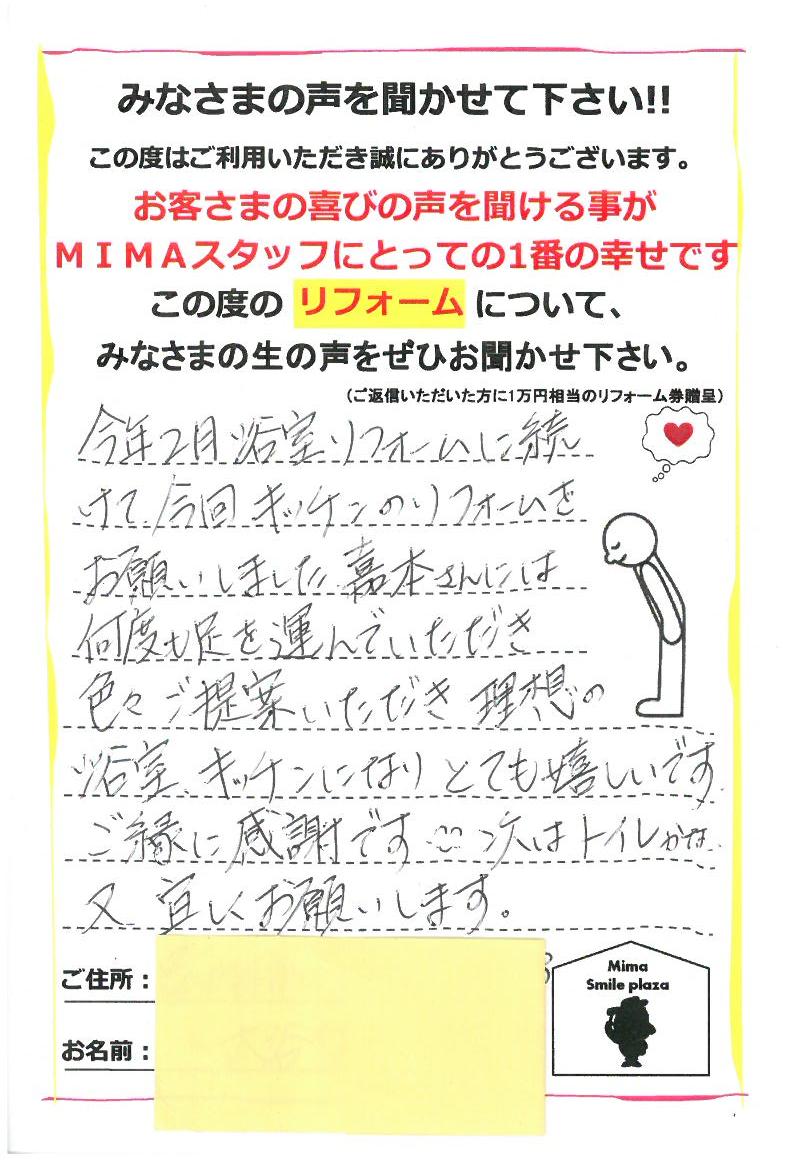 みなさまの声を聞かせて下さい!!
この度はご利用いただき誠にありがとうございます。
お客さまの喜びの声を聞ける事が
ＭＩＭＡスタッフにとっての1番の幸せです
この度の リフォーム について、
みなさまの生の声をぜひお聞かせ下さい。
（ご返信いただいた方に1万円相当のリフォーム券贈呈）
今年2月浴室リフォームに続
けて、今回キッチンのリフォームを
お願いしました 嘉本さんには
何度も足を運んでいただき
色々ご提案いただき 理想の
浴室、キッチンになり とても嬉しいです
ご縁に感謝です 次はトイレかな
又 宜しくお願いします。
ご住所：
お名前：
Mima
Smile plaza